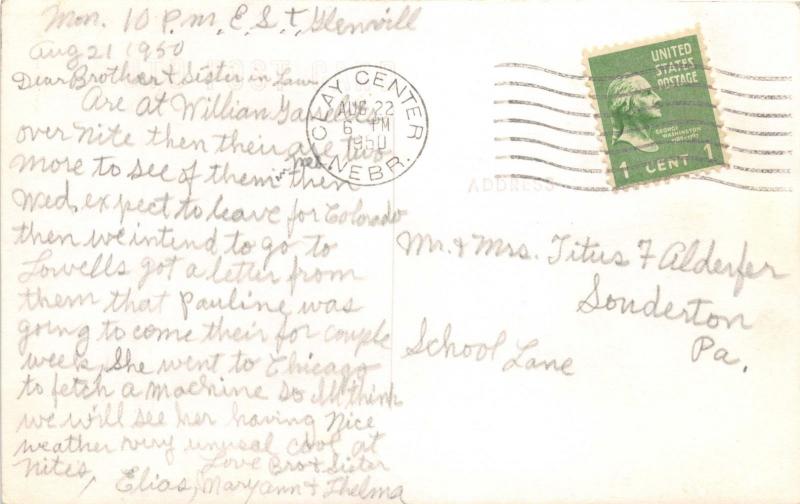 Mon. 10 P.m. E.S.t. Glenvill
Aug 21 1950
Dear Brother & Sister in Law
Are at William
over nite then their are two
more to see of them then
Wed. expect to leave for Colorado
then we intend to go to
Lowells got a letter from
them that Pauline was
going to come their for couple
weeks, She went to Chicago
to fetch a machine so think
we will see her having Nice
weather very unusal cool at
nites, Love Bro & Sister
Elias, Maryann & Thelma
CLAY CENTER
AUG 22
6 PM
1950
NEBR.
UNITED
STATES
POSTAGE
GEORGE
WASHINGTON
1 CENT 1
ADDRESS
Mr. & Mrs. Titus F Alderfer
Souderton
School Lane
Pa.